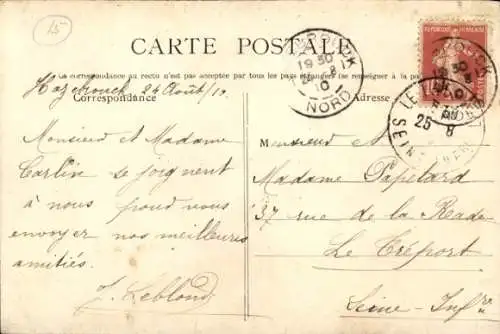 15
CARTE POSTALE
La correspondance au recto n'est pas acceptée par tous les pays étrangers (se renseigner à la poste)
Hazebrouck 24 Août/10
Correspondance
Adresse
Monsieur et Madame
Carlin se joignent
à nous pour vous
envoyer nos meilleures
amitiés.
J. Leblond
Monsieur et
Madame Papelard
37 rue de la Rade
Le Tréport
Seine-Infre
19 30
10
NORD
REPUBLIQUE FRANÇAISE
10
LE
25 8
SEINE